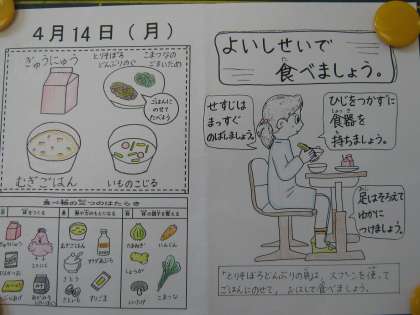 4月14日(月)
ぎゅうにゅう
とりそぼろ
どんぶりのぐ
こまつなの
ごまいため
ごはんに
のせて
たべよう
むぎごはん
いものこじる
食べ物の三つのはたらき
ぎゅうにゅう
とりにく
むぎごはん
さとう
すりごま
たまねぎ
にんじん
しょうが
こまつな
よいしせいで
食べましょう。
せすじは
まっすぐ
のばしましょう。
ひじをつかずに
食器を
持ちましょう。
足はそろえて
ゆかに
つけましょう。
とりそぼろどんぶりの具は、スプーンを使って
ごはんにのせて、
食べましょう。